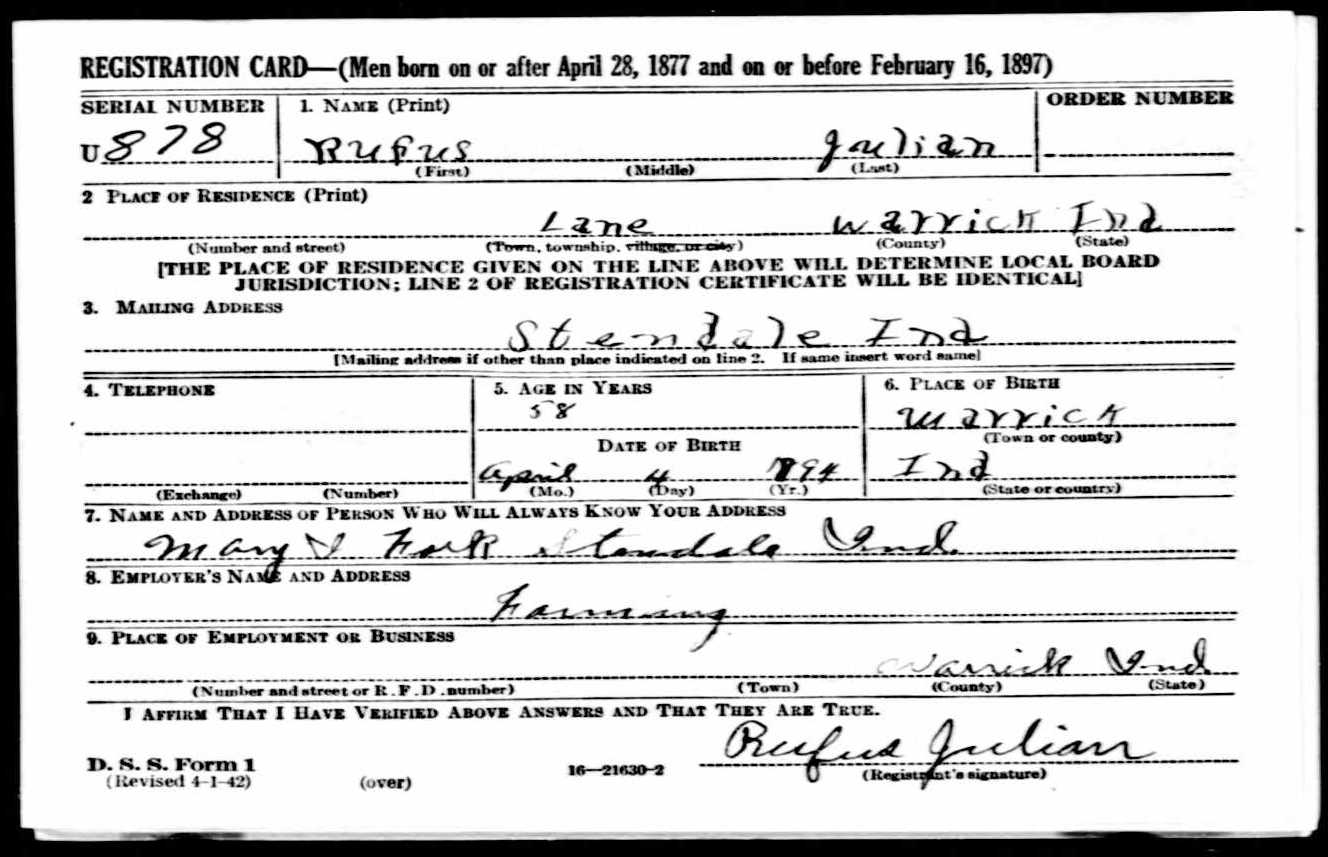 REGISTRATION CARD—(Men born on or after April 28, 1877 and on or before February 16, 1897)
SERIAL NUMBER 1. NAME (Print) ORDER NUMBER
U 878 Rufus Julian
(First) (Middle) (Last)
2 PLACE OF RESIDENCE (Print)
Lane Warrick Ind
(Number and street) (Town, township, village, or city) (County) (State)
[THE PLACE OF RESIDENCE GIVEN ON THE LINE ABOVE WILL DETERMINE LOCAL BOARD
JURISDICTION; LINE 2 OF REGISTRATION CERTIFICATE WILL BE IDENTICAL]
3. MAILING ADDRESS
Stendale Ind
[Mailing address if other than place indicated on line 2. If same insert word same]
4. TELEPHONE 5. AGE IN YEARS 6. PLACE OF BIRTH
58 Warrick
(Town or county)
DATE OF BIRTH
April 4 Ind
(Exchange) (Number) (Mo.) (Day) (Yr.) (State or country)
7. NAME AND ADDRESS OF PERSON WHO WILL ALWAYS KNOW YOUR ADDRESS
Mary Stendale Ind.
8. EMPLOYER'S NAME AND ADDRESS
Farming
9. PLACE OF EMPLOYMENT OR BUSINESS
Warrick Ind
(Number and street or R. F. D. number) (Town) (County) (State)
I AFFIRM THAT I HAVE VERIFIED ABOVE ANSWERS AND THAT THEY ARE TRUE.
Rufus Julian
D. S. S. Form 1
(Revised 4-1-42) (over) 16—21630-2 (Registrant's signature)